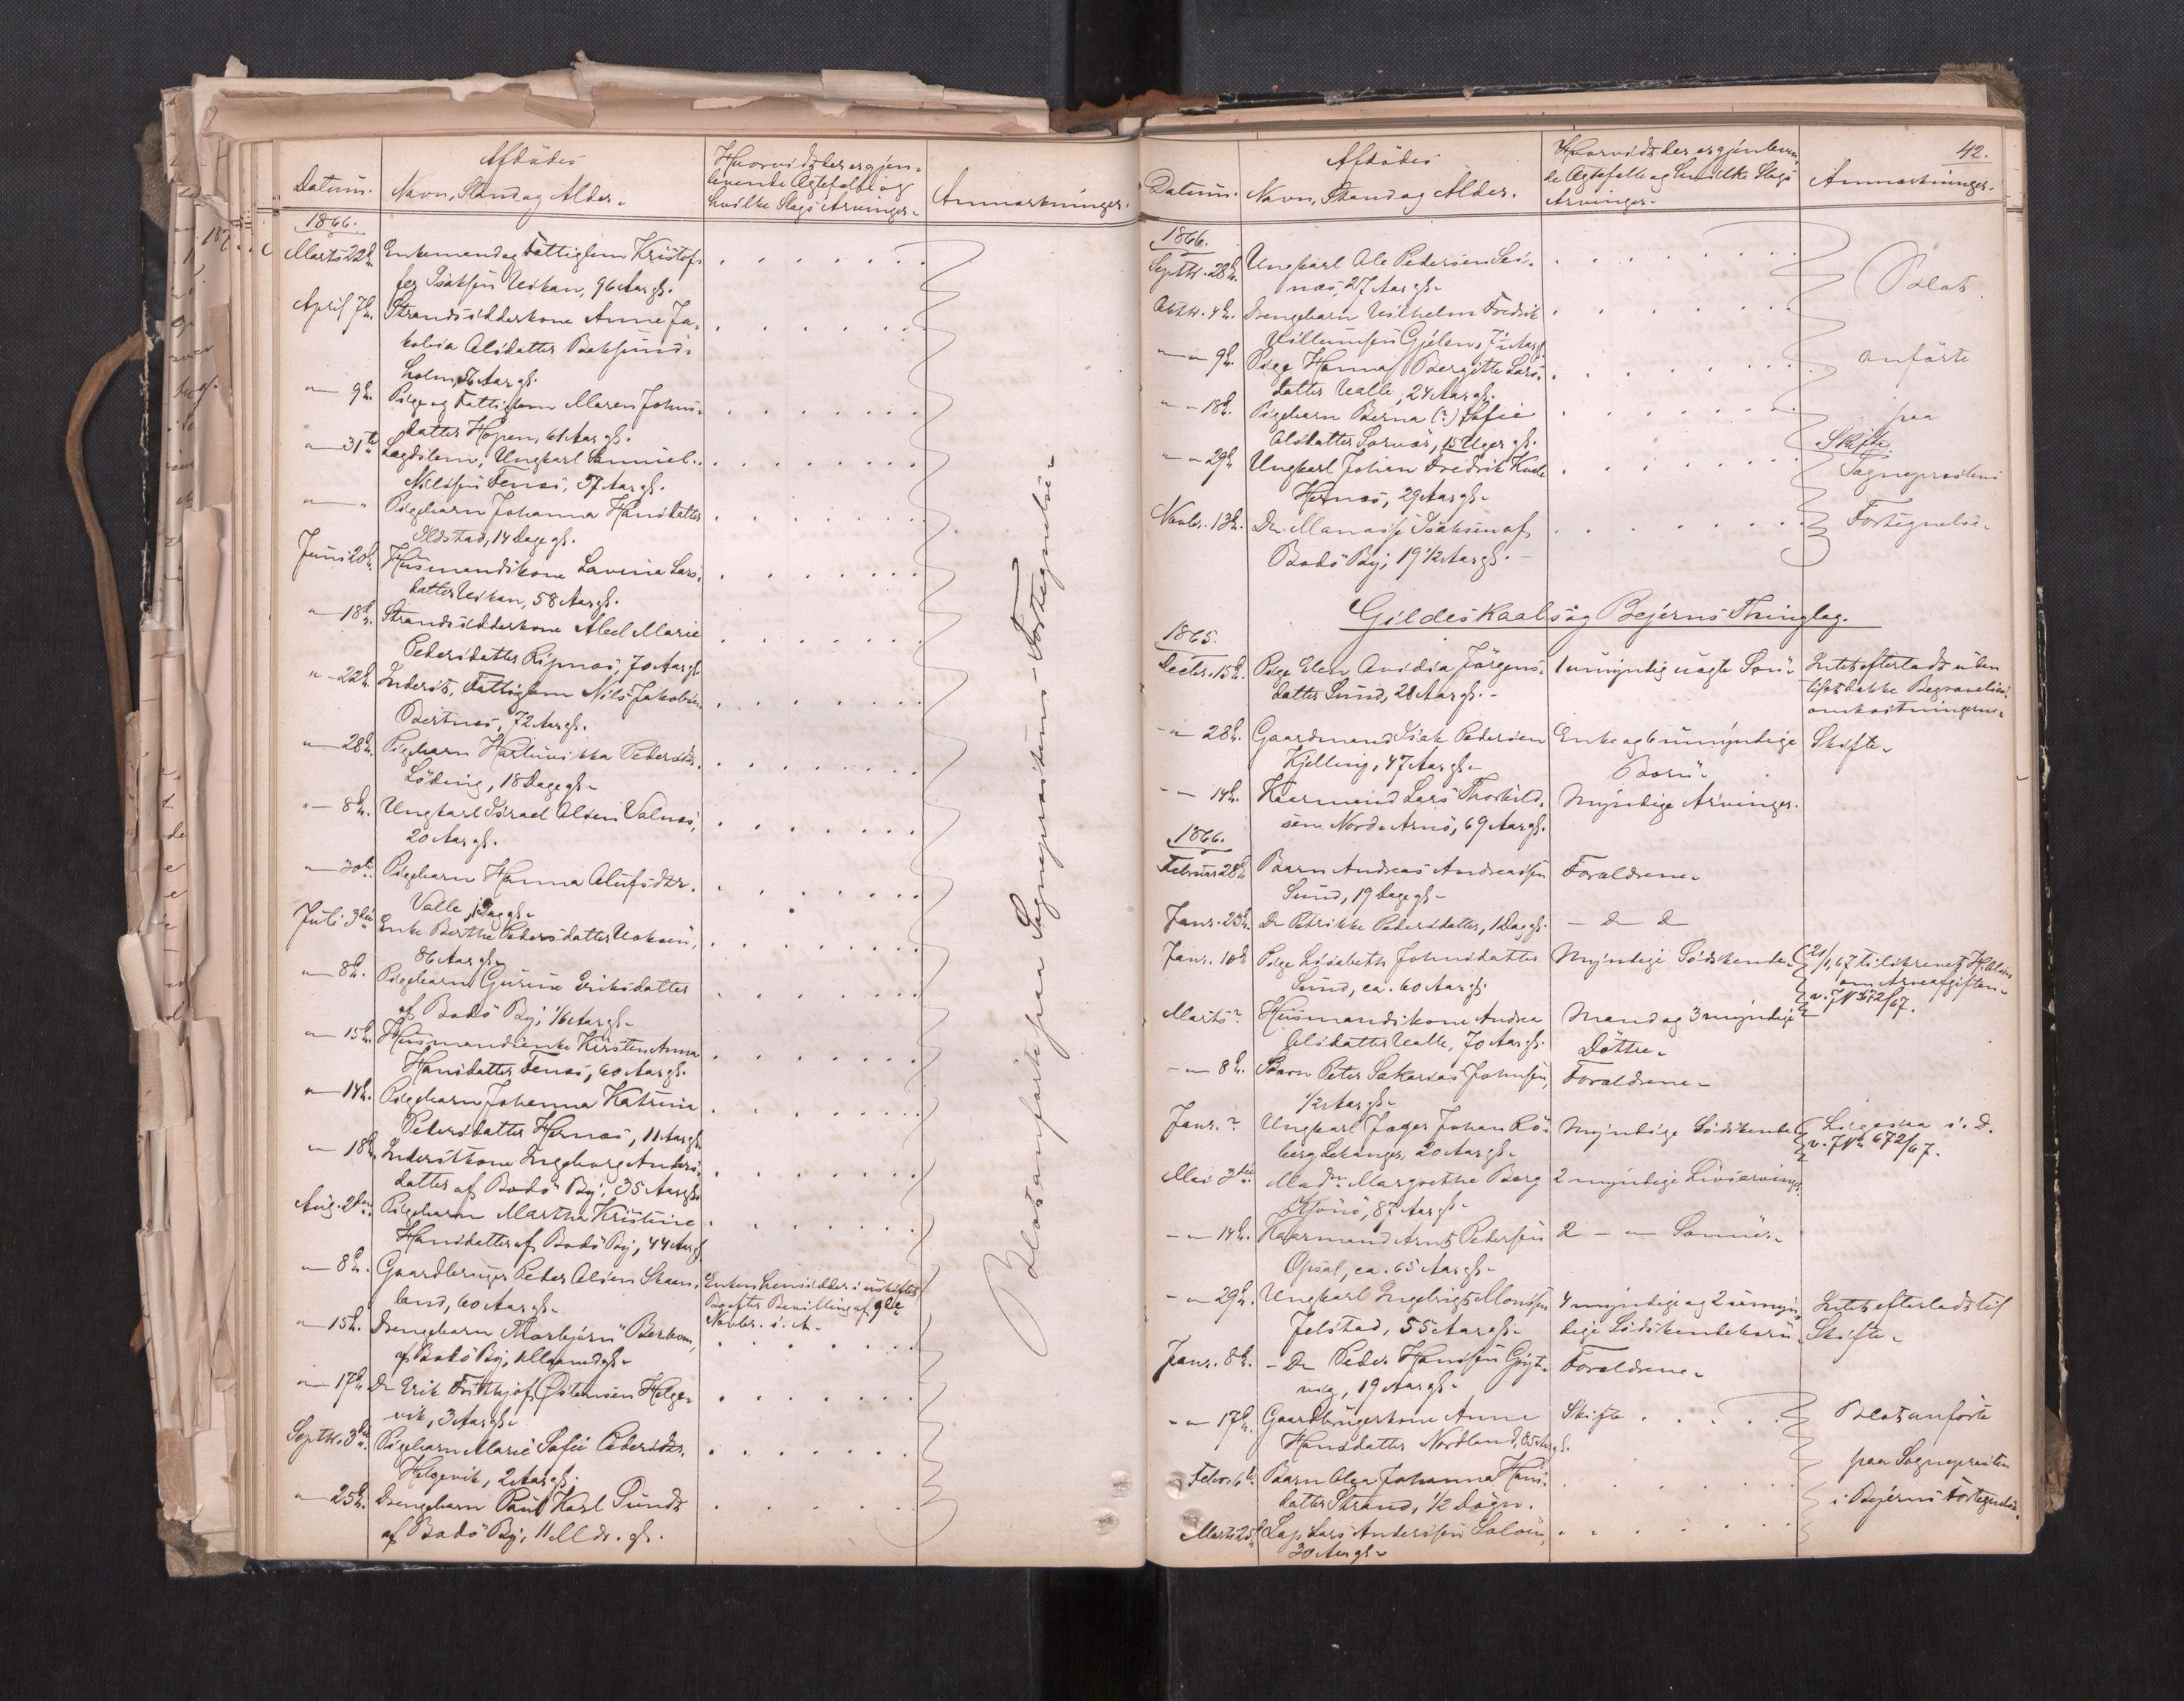 Datum.
Afdödes
Navn, Stand og Alder.
Hvorvidt der er gjen-
levende Ægtefælle og
hvilke Slags Arvinger.
Anmærkninger.
1866.
Marts 22de
Enkemand og Fattiglem Kristof-
fer Isaksen, 96 Aar gl.
April 7de
Strandsidderkone Anne Ja-
kobia Olsdatter
holm, 56 Aar gl.
" 9de
Pige og Fattiglem Maren Johns-
datter Hopen, 61 Aar gl.
" 31te
Lægdslem, Ungkarl Samuel
Nilssen Fenes, 57 Aar gl.
" "
Pigebarn Johanna Hansdatter
Ildstad, 14 Dage gl.
Juni 20de
Husmandskone Lavina Lars-
datter, 58 Aar gl.
" 18de
Strandsidderkone Abel Marie
Pedersdatter Ripnæs, 70 Aar gl.
" 22de
Inderst, Fattiglem Nils Jakobsen
Bertnæs, 72 Aar gl.
" 28de
Pigebarn Hartvikka Pedersdtr.
Löding, 18 Dage gl.
" 8de
Ungkarl Israel Olsen Valnes,
20 Aar gl.
" 30te
Pigebarn Hanna Olufsdtr.
Valle, 1 Dag gl.
Juli 3die
Enke Berthe Pedersdatter
86 Aar gl.
" 8de
Pigebarn Gurine Eriksdatter
af Bodö By, 1/6 Aar gl.
" 15de
Husmandsenke Kirsten Anna
Hansdatter Fenes, 60 Aar gl.
" 14de
Pigebarn Johanna Katrina
Pedersdatter Hernæs, 11 Aar gl.
" 18de
Inderstkone Ingeborg Anders-
datter af Bodö By, 35 Aar gl.
Aug. 2den
Pigebarn Martha Kristine
Hansdatter af Bodö By, 44 Aar gl.
" 8de
Gaardbruger Peder Olsen Skaan-
land, 60 Aar gl.
Enken hensidder i uskiftet
Bo efter Bevilling af 9de
Novbr. s. A.
" 15de
Drengebarn Thorbjörn
af Bodö By, 1 Maaned gl.
" 17de
Do Erik Frithjof Östensen Helge-
vik, 3 Aar gl.
Septbr. 3die
Pigebarn Marie Sofie Pedersdtr.
Helgevik, 2 Aar gl.
" 25de
Drengebarn Paul Karl Sundt
af Bodö By, 11 Mdr. gl.
Blot anförte paa Sogneprestens Fortegnelse
42.
Datum.
Afdödes
Navn, Stand og Alder.
Hvorvidt der er gjenleven-
de Ægtefælle og hvilke Slags
Arvinger.
Anmærkninger.
1866.
Septbr. 28de
Ungkarl Ole Pedersen Sei-
næs, 27 Aar gl.
Oktbr. 4de
Drengebarn Vilhelm Fredrik
Villumsen Gjelen, 7½ Aar gl.
" 9de
Pige Hanna Bergitte Lars-
datter Valle, 24 Aar gl.
" 18de
Pigebarn Berna (?) Sofie
Olsdatter, 15 Uger gl.
" 29de
Ungkarl Johan Fredrik
Hernæs, 29 Aar gl.
Novbr. 13de
Do Manasse Isaksen af
Bodö By, 19 1/2 Aar gl.
Blot
anförte
paa
Skifte
Sogneprestens
Fortegnelse.
Gildeskaals og Bejerns Thinglag.
1865.
Decbr. 15de
Pige Elen Avidia Jörgens-
datter Sund, 28 Aar gl.
1 umyndig uægte Sön
Intet efterladt uden
til at dække Begravelses-
omkostningerne.
" 28de
Gaardmand Isak Pedersen
Kjelling, 47 Aar gl.
Enke og 6 umyndige
Börn.
Skifte.
" 14de
Kaarmand Lars Thorkild-
sen Nordre Arnö, 69 Aar gl.
Myndige Arvinger.
1866.
Februar 28de
Barn Andreas Andreassen
Sund, 19 Dage gl.
Forældrene.
Janr. 23de
Do Petrikke Pedersdatter, 1 Dag gl.
- d d
Janr. 10de
Pige Lisabeth Johnsdatter
Sund, ca. 60 Aar gl.
Myndige Södskende.
21/1 67 tilskrevet
om Arveafgiften
v. J No 672/67.
Marts ?
Husmandskone Andrea
Olsdatter Valle, 70 Aar gl.
Mand og 3 myndige
Döttre.
" 8de
Barn Peter Sakarias Johnsen,
1/2 Aar gl.
Forældrene.
Janr. ?
Ungkarl Jæger Johan Rö-
berg, 20 Aar gl.
Myndige Södskende
Ligesaa s. D.
v. J No 672/67.
Mai 3die
Madm. Margrethe Berg
87 Aar gl.
2 myndige Livsarvinger.
" 14de
Kaarmand Arnt Pedersen
Opsal, ca. 65 Aar gl.
2 - " Sönner.
" 29de
Ungkarl Ingebrigt Monssen
Jelstad, 55 Aar gl.
4 myndige og 2 umyn-
dige Södskendebörn
Intet efterladt til
Skifte.
Janr. 8de
- Do Peder Hanssen Gjyt-
vig, 19 Aar gl.
Forældrene.
" 17de
Gaardbrugerkone Anna
Hansdatter Nordland, 85 Aar gl.
Skifte
Blot anförte
paa Sognepresten
i Bejerns Fortegnelse.
Febr. 6te
Barn Olea Johanna Hans-
datter Strand, 1/2 Dögn.
Marts 25de
Lap Lars Anderssen
30 Aar gl.